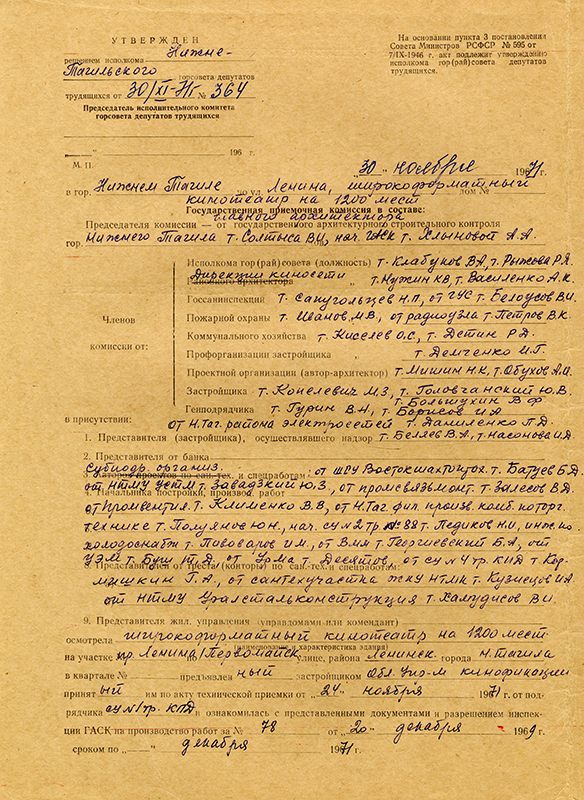 УТВЕРЖДЕН
решением исполкома Нижне-
Тагильского горсовета депутатов
трудящихся от 30/XI-71г № 364
Председатель исполнительного комитета
горсовета депутатов трудящихся
„ “ 196 г.
М. П.
На основании пункта 3 постановления
Совета Министров РСФСР № 595 от
7/IX-1946 г. акт подлежит утверждению
исполкома гор(рай)совета депутатов
трудящихся.
„30“ ноября 1971
в гор. Нижнем Тагиле по ул. Ленина, широкоформатный дом №
кинотеатр на 1200 мест
Государственная приемочная комиссия в составе:
главного архитектора
Председателя комиссии — от государственного архитектурного строительного контроля
гор. Нижнего Тагила т. Солтыса В.И, нач. т. Хлыновой А.А.
Исполкома гор(рай)совета (должность) т. Клабуков ВА, т. Рыжова Р.Я.
Дирекции киносети „ т. Нужин КВ, т. Василенко А.К.
Районного архитектора
Госсанинспекций т. Сапугольцев Н.П, от ГУС т. Белоусов ВИ
Пожарной охраны т. Иванов М.В, от радиоузла т. Петров В.К.
Коммунального хозяйства т. Киселев О.С, т. Детин Р.Д.
Профорганизации застройщика „ т. Демченко И.Г.
Проектной организации (автор-архитектор) т. Мишин Н.К, т. Обухов А.И.
Застройщика т. Копелевич М.З, т. Головчанский Ю.В.
т. Большухин В.Ф
Генподрядчика т. Гурин В.Н, т. Борисов И.А
Членов
комиссии от:
в присутствии: от Н.Таг. района электросетей т. Даниленко П.Д.
1. Представителя (застройщика), осуществлявшего надзор т. Беляев В.А, т. Насонова И.Д.
2. Представителя от банка
Субподр. организ. и спецработам: от ШСУ Востокшахтпрох. т. Батуев Б.Д.
от НТМУ т. Завадский Ю.З, от промсвязьмонт. т. Залесов В.Д.
4. Начальника постройки, производ. работ
от Промвентил. т. Клименко В.В, от Н.Таг фил произв. комб. по торг.
технике т. Полуянов Ю.Н, нач. су №2 тр. № 88 т. Педиков Н.И, инж. по
холодоснабж т. Пивоваров И.М, от т. Георгиевский Б.А, от
т. т. Десятов, от су №4 тр. КПД т. Кор-
5. Представителя от треста (конторы) по сан.-тех. и спецработам:
мишкин Г.А, от сантехучастка жку НТМК т. Кузнецов ИА
от НТМУ Уралстальконструкция т. Халудисов В.И.
9. Представителя жил. управления (управдомами или комендант)
осмотрела широкоформатный кинотеатр на 1200 мест
(наименование и характеристика здания)
на участке пр. Ленина/Первомайск. по улице, района Ленинск. города Н.Тагила
в квартале № предъявлен ный застройщиком Обл. Упр-м кинофикации
принят ый им по акту технической приемки от „24“ ноября 1971 г. от под-
рядчика су №1 тр. КПД и ознакомилась с представленными документами и разрешением инспек-
ции ГАСК на производство работ за № 78 от „20“ декабря 1969 г.
сроком по „ “ декабря 1971 г.